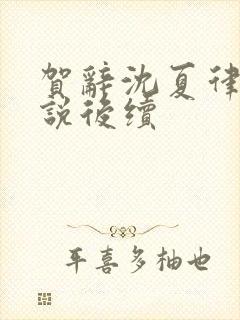 賀辭沈夏律
說後續
平喜多柚也